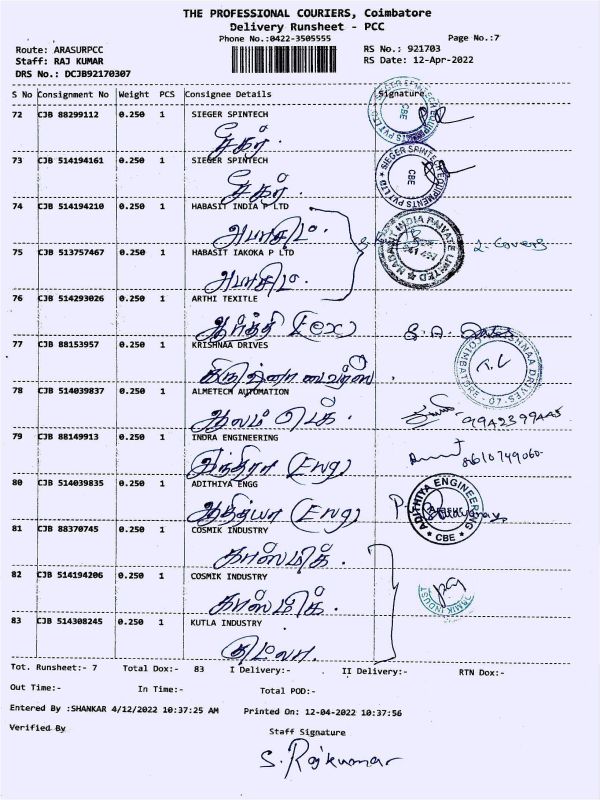 THE PROFESSIONAL COURIERS, Coimbatore
Delivery Runsheet - PCC
Phone No.:0422-3505555
Page No.:7
Route: ARASURPCC
RS No.: 921703
Staff: RAJ KUMAR
RS Date: 12-Apr-2022
DRS No.: DCJB92170307
S No Consignment No Weight PCS Consignee Details Signature
72 CJB 88299112 0.250 1 SIEGER SPINTECH
சிகர்
73 CJB 514194161 0.250 1 SIEGER SPINTECH
சிகர்
SIEGER SPINTECH EQUIPMENTS PVT LTD
CBE
74 CJB 514194210 0.250 1 HABASIT INDIA P LTD
அபாசிட்.
HABASIT INDIA PRIVATE LIMITED
2-Covers
75 CJB 513757467 0.250 1 HABASIT IAKOKA P LTD
அபாசிட்.
76 CJB 514293026 0.250 1 ARTHI TEXITLE
ஆர்த்தி (Tex)
77 CJB 88153957 0.250 1 KRISHNAA DRIVES
கிருஷ்ணா டைவர்ஸ்
KRISHNAA DRIVES
COIMBATORE
78 CJB 514039837 0.250 1 ALMETECH AUTOMATION
ஆலம் டெக்.
79 CJB 88149913 0.250 1 INDRA ENGINEERING
இந்திரா (Eng)
80 CJB 514039835 0.250 1 ADITHIYA ENGG
ஆதித்யா (Eng)
ADITHIYA ENGINEERING
CBE
81 CJB 88370745 0.250 1 COSMIK INDUSTRY
காஸ்மிக்.
82 CJB 514194206 0.250 1 COSMIK INDUSTRY
காஸ்மிக்.
83 CJB 514308245 0.250 1 KUTLA INDUSTRY
குட்லா.
Tot. Runsheet:- 7 Total Dox:- 83 I Delivery:- II Delivery:- RTN Dox:-
Out Time:- In Time:- Total POD:-
Entered By :SHANKAR 4/12/2022 10:37:25 AM Printed On: 12-04-2022 10:37:56
Verified By Staff Signature
S. Rajkumar